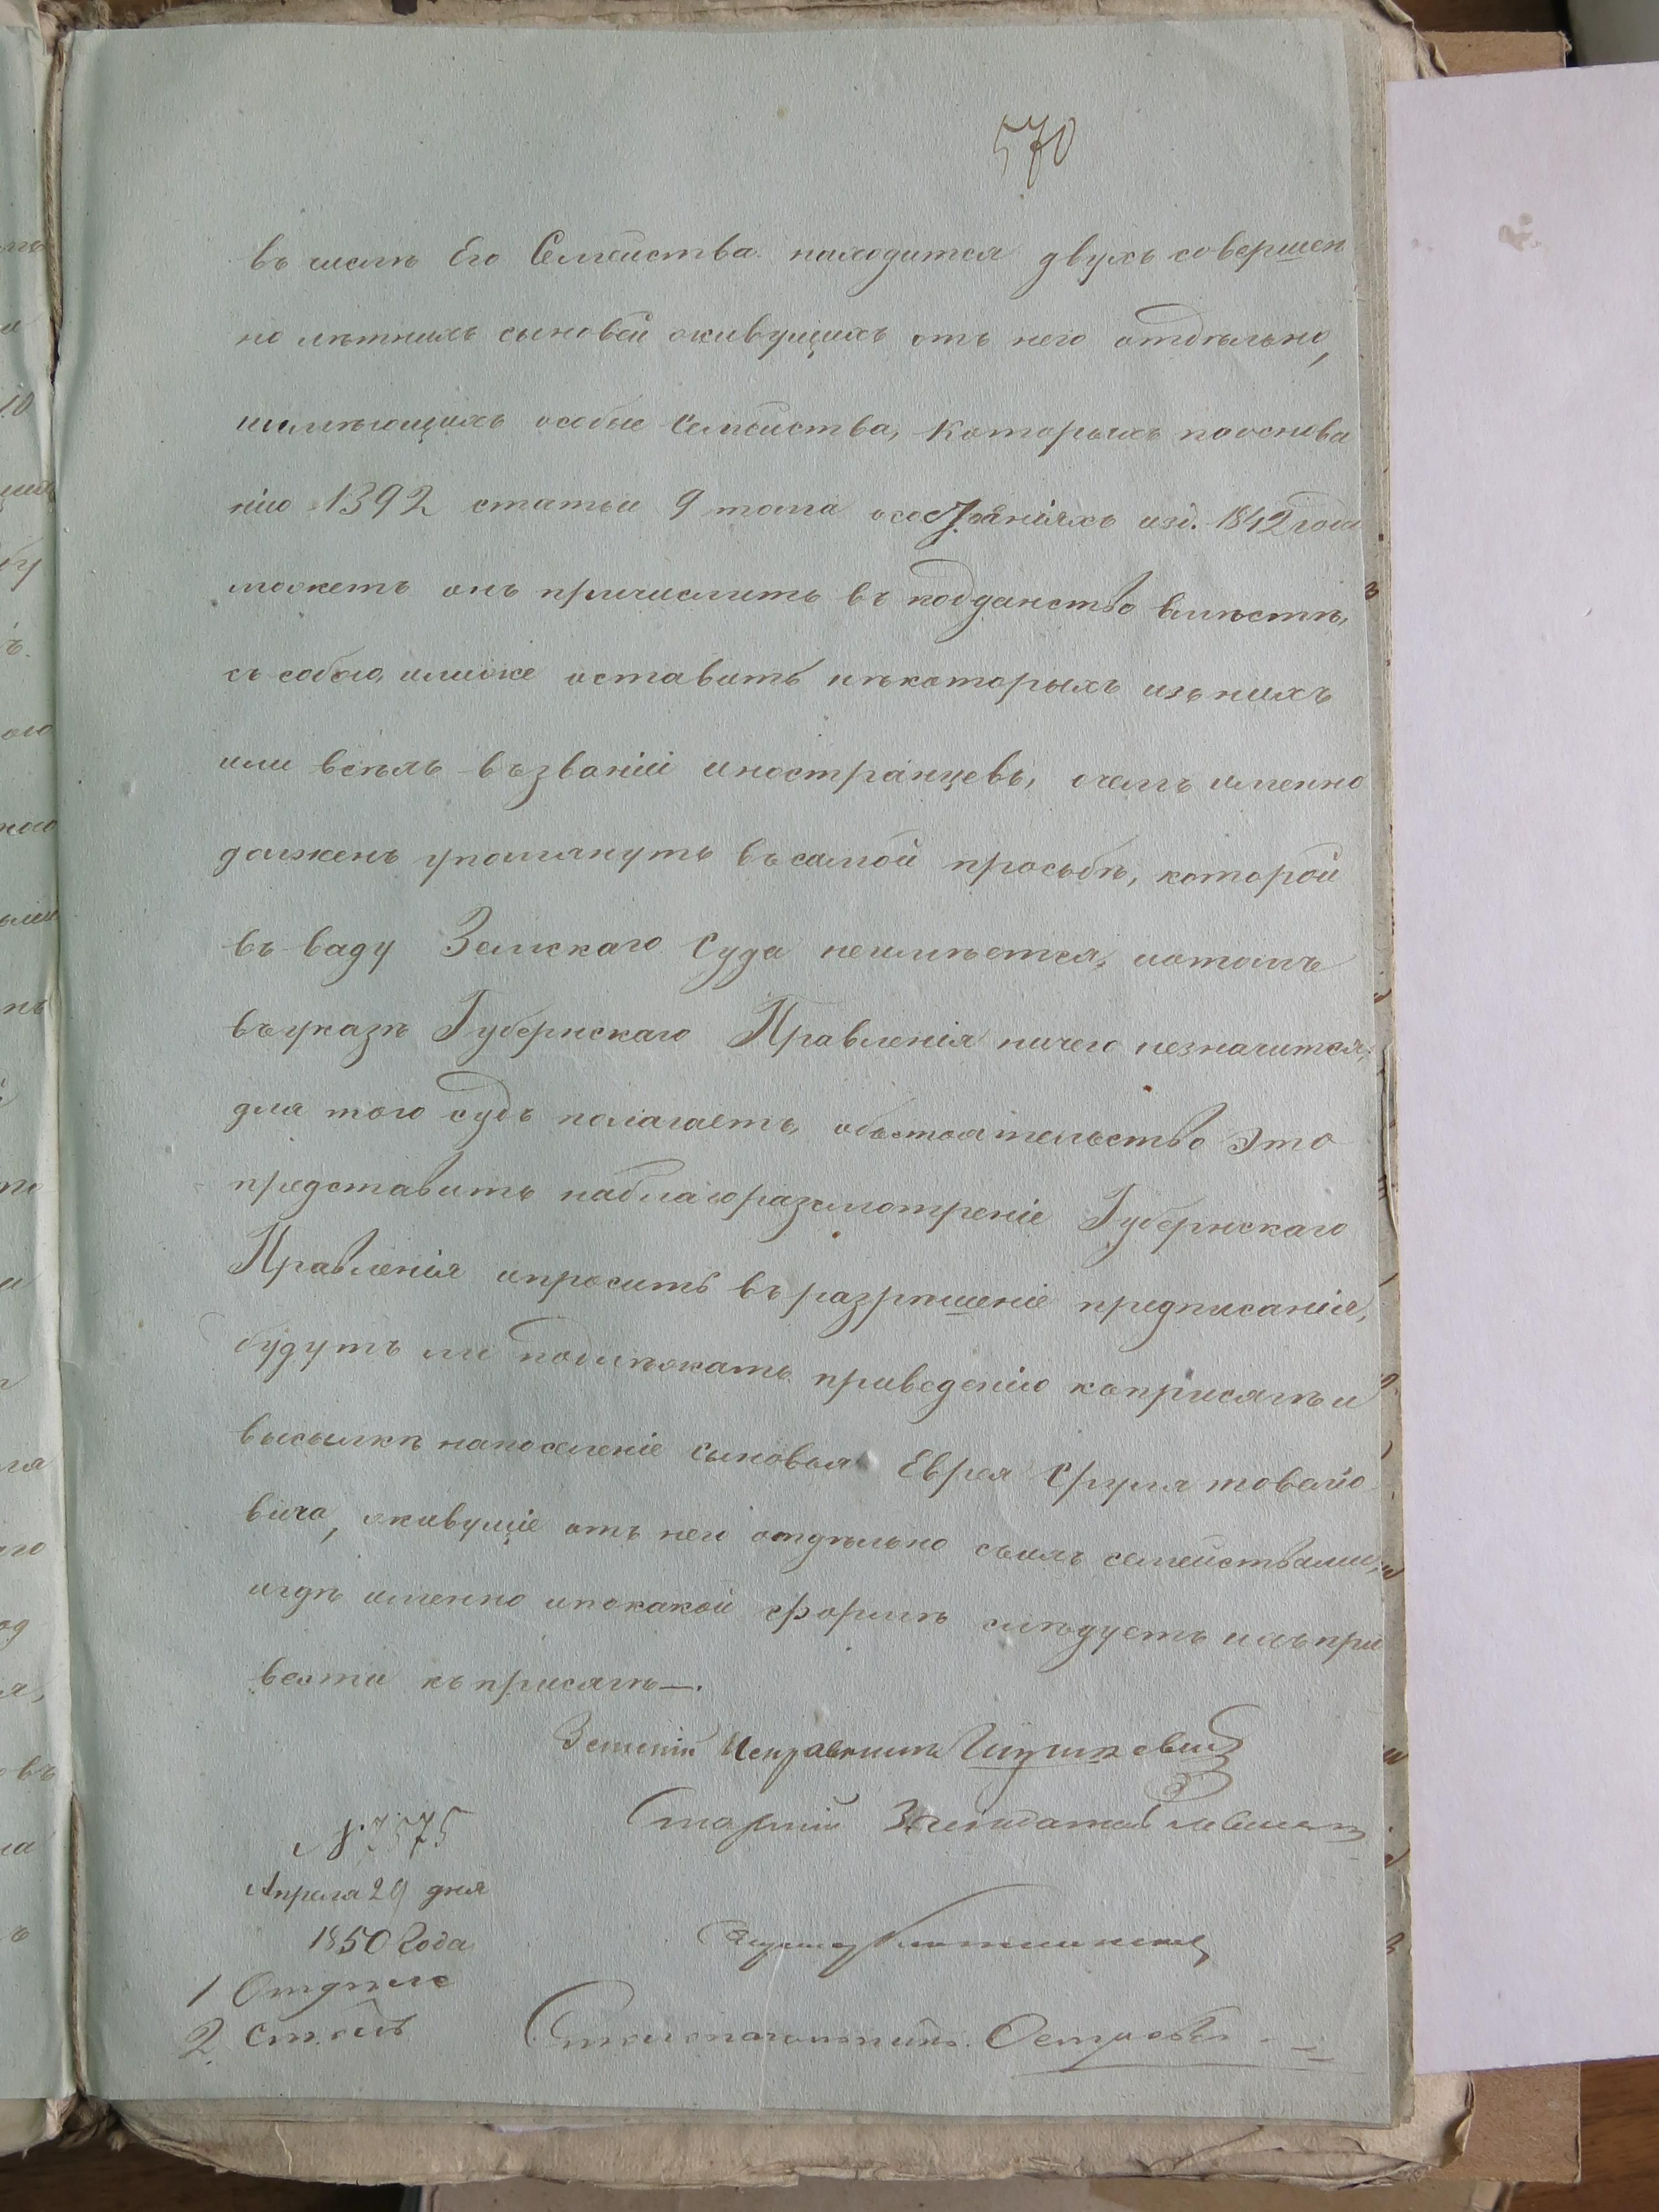 570
въ числѣ Его Семейства находится двухъ совершен
но лѣтнихъ сыновей живущихъ отъ него отдѣльно,
иимѣющихъ особые Семейства, Которыхъ пооснова
нію 1392 статьи 9 тома осостояніяхъ изд. 1842 года
можетъ онъ причислить въ подданство вмѣстѣ,
съ собою, илиже оставить нѣкоторыхъ изъ нихъ
или всѣхъ въ званіи иностранцевъ, очемъ именно
долженъ упомянуть въ самой просьбѣ, которой
въ виду Земскаго Суда неимѣется, иотомъ
въ указѣ Губернскаго Правленія ничего незначится,
для того судъ полагаетъ, обьстоятельство Это
представить наблагоразсмотреніе Губернскаго
Правленія ипросить въ разрѣшеніе предписанія,
будутъ ли подлѣжать приведенію коприсягѣ и
высылкѣ напоселеніе Сыновья Еврея Сруля
вича, живущіе отъ него отдѣльно съихъ семействами,
игдѣ именно ипокакой формѣ слѣдуетъ ихъ при
вести къ присягѣ —.
Земскій Исправникъ
Старшій Засѣдатель
№ 7575
Апреля 29 дня
1850 Года
1 Отдѣле
2 Столъ
Столоначальникъ